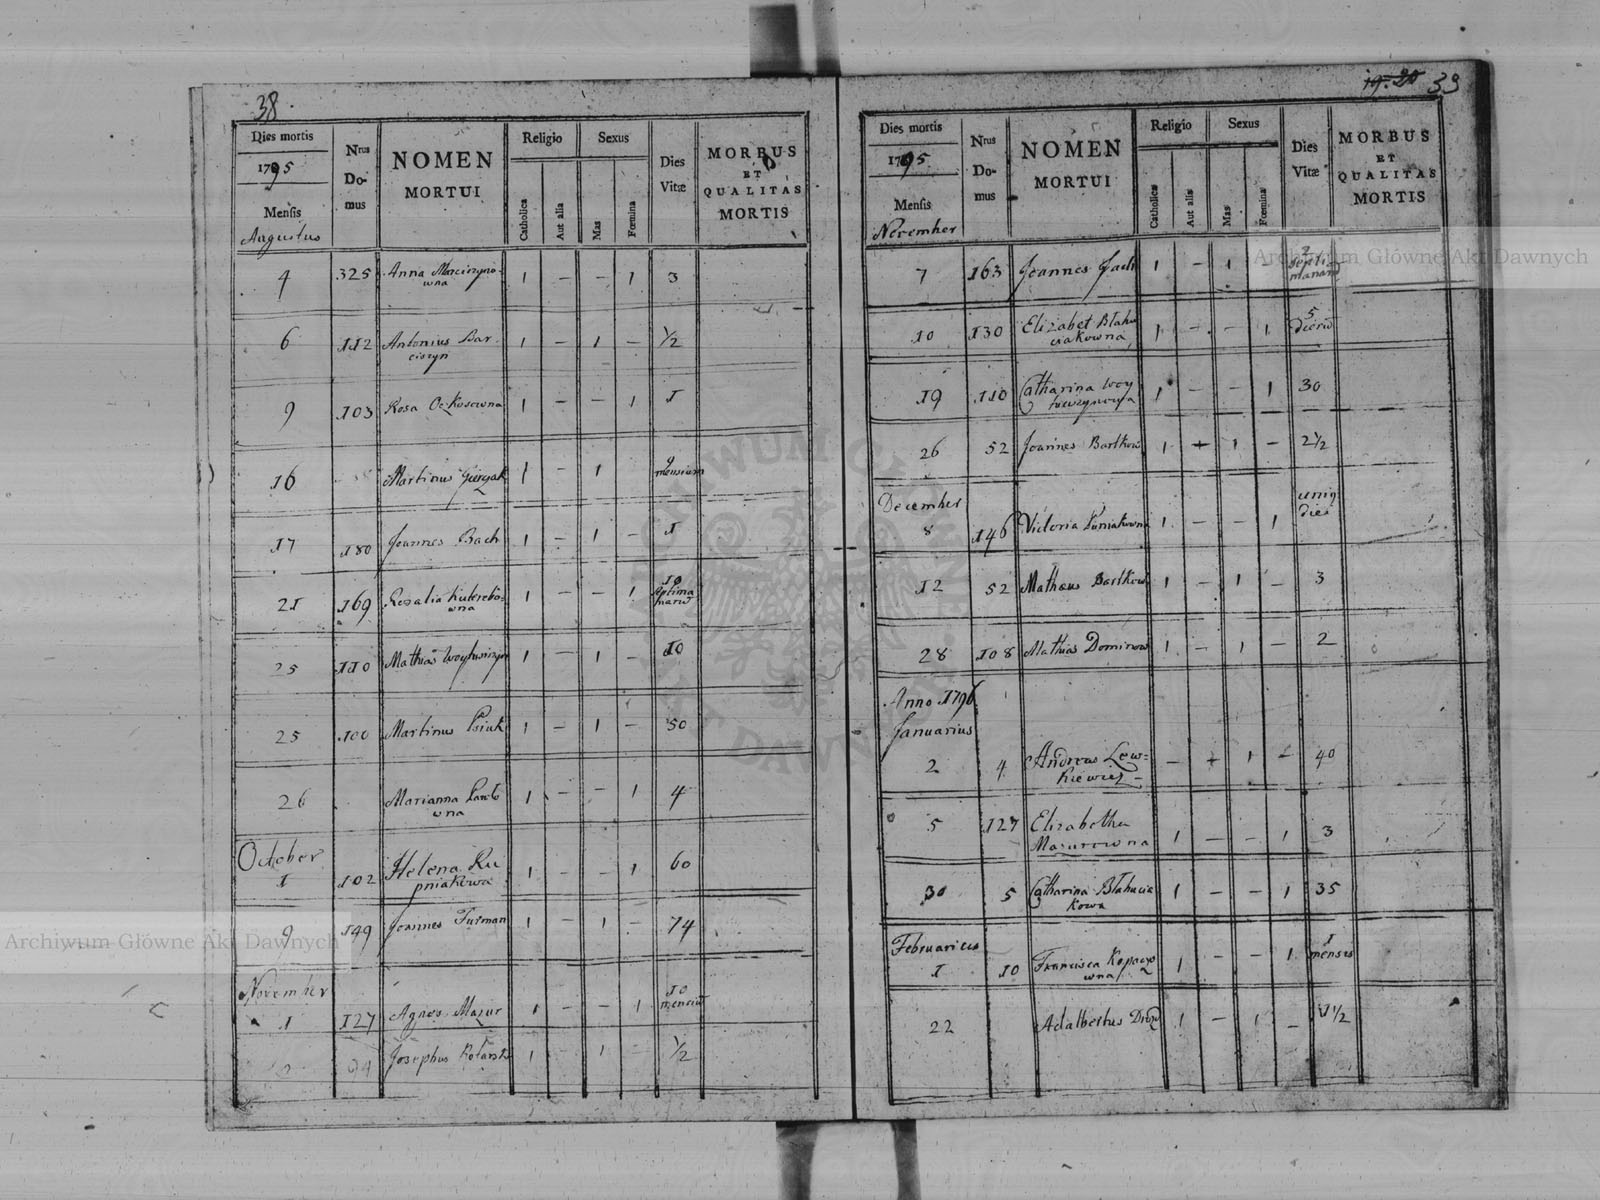 38.
Dies mortis
1795
Mensis
Augustus
Nrus
Do-
mus
NOMEN
MORTUI
Religio
Catholica
Aut alia
Sexus
Mas
Fœmina
Dies
Vitæ
MORBUS
ET
QUALITAS
MORTIS
4 325 Anna Marciszyno-
wna 1 — — 1 3
6 112 Antonius Bar-
ciszyn 1 — 1 — 1/2
9 103 Rosa Oczkosowna 1 — — 1 1
16 Martinus 1 — 1 9
mensium
17 180 Joannes Bach 1 — 1 — 1
21 169 Rozalia Kulerebo-
wna 1 — — 1 10
septima
narū
25 110 Mathias 1 — 1 — 10
25 100 Martinus Psiuk 1 — 1 — 50
26 Marianna Pawło
wna 1 — — 1 4
October
1 102 Helena Ru
pniakowa 1 — — 1 60
9 149 Joannes Furman 1 — 1 — 74
November
1 127 Agnes Mazur 1 — — 1 10
mensiū
94 Josephus 1 — 1 — 1/2
19. 20 39
Dies mortis
1795
Mensis
November
Nrus
Do-
mus
NOMEN
MORTUI
Religio
Catholica
Aut alia
Sexus
Mas
Fœmina
Dies
Vitæ
MORBUS
ET
QUALITAS
MORTIS
7 163 Joannes Jach 1 — 1 — 2
septi
manarū
10 130 Elizabet Błahu
ciakowna 1 — — 1 5
dierū
19 110 Catharina Woy
1 — — 1 30
26 52 Joannes Bartkow 1 + 1 — 2 1/2
December
8 146 Victoria 1 — — 1 uniq
diei
12 52 Matheus Bartkow 1 — 1 — 3
28 108 Mathias Dominow 1 — 1 — 2
Anno 1796
Januarius
2 4 Andreas Lew=
kiewicz — + 1 — 40
5 127 Elizabetha
Mazurowna 1 — — 1 3
30 5 Catharina Błahucia
kowa 1 — — 1 35
Februarius
1 10 Francisca Kopaczo
wna 1 — — 1 1
mensis
22 Adalbertus 1 — 1 — 1 1/2
Archiwum Główne Akt Dawnych
Archiwum Główne Akt Dawnych
ARCHIWUM GŁÓWNE AKT DAWNYCH